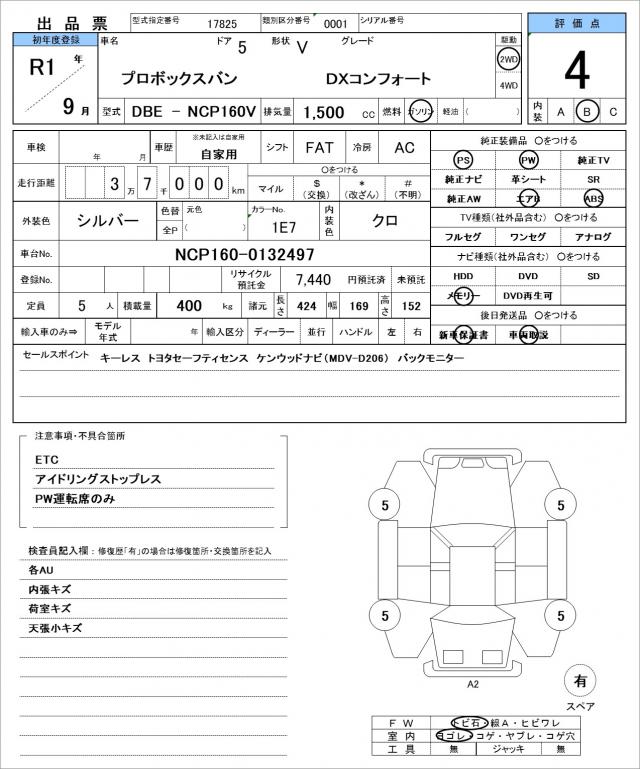 出品票 型式指定番号 17825 類別区分番号 0001 シリアル番号 評価点
初年度登録 車名 ドア 5 形状 V グレード 駆動
R1 年 プロボックスバン DXコンフォート 2WD 4
9 月 4WD
型式 DBE － NCP160V 排気量 1,500 cc 燃料 ガソリン 軽油 ( ) 内装 A B C
車検 年 月 車歴 ※未記入は自家用 自家用 シフト FAT 冷房 AC 純正装備品 〇をつける
走行距離 3 万 7 千 0 0 0 km 〇をつける マイル $ (交換) * (改ざん) # (不明) PS PW 純正TV
純正ナビ 革シート SR
外装色 シルバー 色替 元色 カラーNo. 内装色 クロ 純正AW エアB ABS
全P ( ) 1E7 TV種類(社外品含む) 〇をつける
フルセグ ワンセグ アナログ
車台No. NCP160-0132497 ナビ種類(社外品含む) 〇をつける
登録No. リサイクル預託金 7,440 円預託済 未預託 HDD DVD SD
定員 5 人 積載量 400 kg 諸元 長さ 424 幅 169 高さ 152 メモリー DVD再生可
後日発送品 〇をつける
輸入車のみ⇒ モデル年式 年 輸入区分 ディーラー 並行 ハンドル 左 右 新車保証書 車両取説
セールスポイント キーレス トヨタセーフティセンス ケンウッドナビ(MDV-D206) バックモニター
注意事項・不具合箇所
ETC
アイドリングストップレス
PW運転席のみ
検査員記入欄：修復歴「有」の場合は修復箇所・交換箇所を記入
各AU
内張キズ
荷室キズ
天張小キズ
5 5
5 5
A2 有
スペア
FW トビ石・線A・ヒビワレ
室内 ヨゴレ・コゲ・ヤブレ・コゲ穴
工具 無 ジャッキ 無